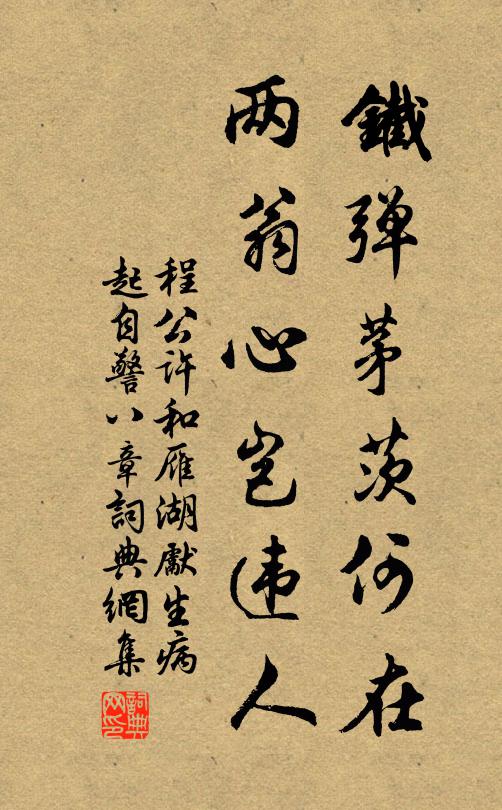 鐵弹茅茨何在
两翁心岂违人
程公许和雁湖獻生病
起自警八章詞典網集
詞典
网印